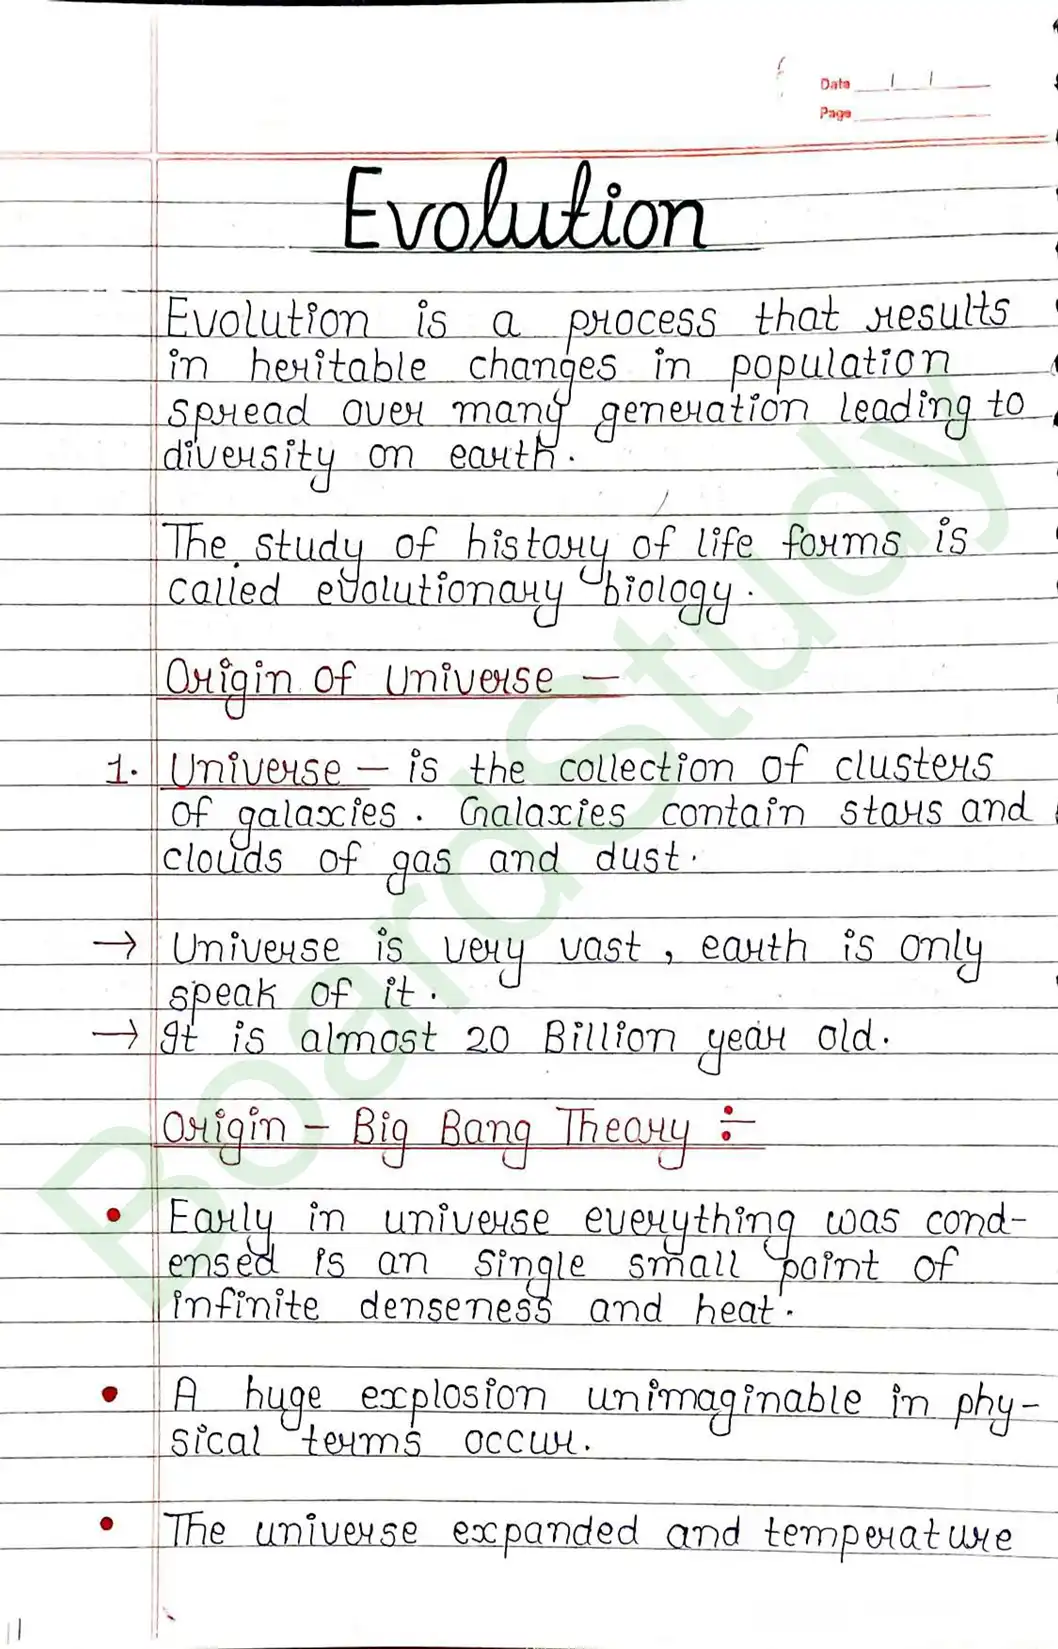 Date
Page
Evolution
Evolution is a process that results
in heritable changes in population
spread over many generation leading to
diversity on earth.
The study of history of life forms is
called evolutionary biology.
Origin of Universe —
1. Universe — is the collection of clusters
of galaxies. Galaxies contain stars and
clouds of gas and dust.
→ Universe is very vast, earth is only
speak of it.
→ It is almost 20 Billion year old.
Origin – Big Bang Theory ÷
• Early in universe everything was cond-
ensed is an single small point of
infinite denseness and heat.
• A huge explosion unimaginable in phy-
sical terms occur.
• The universe expanded and temperature
BoardStudy